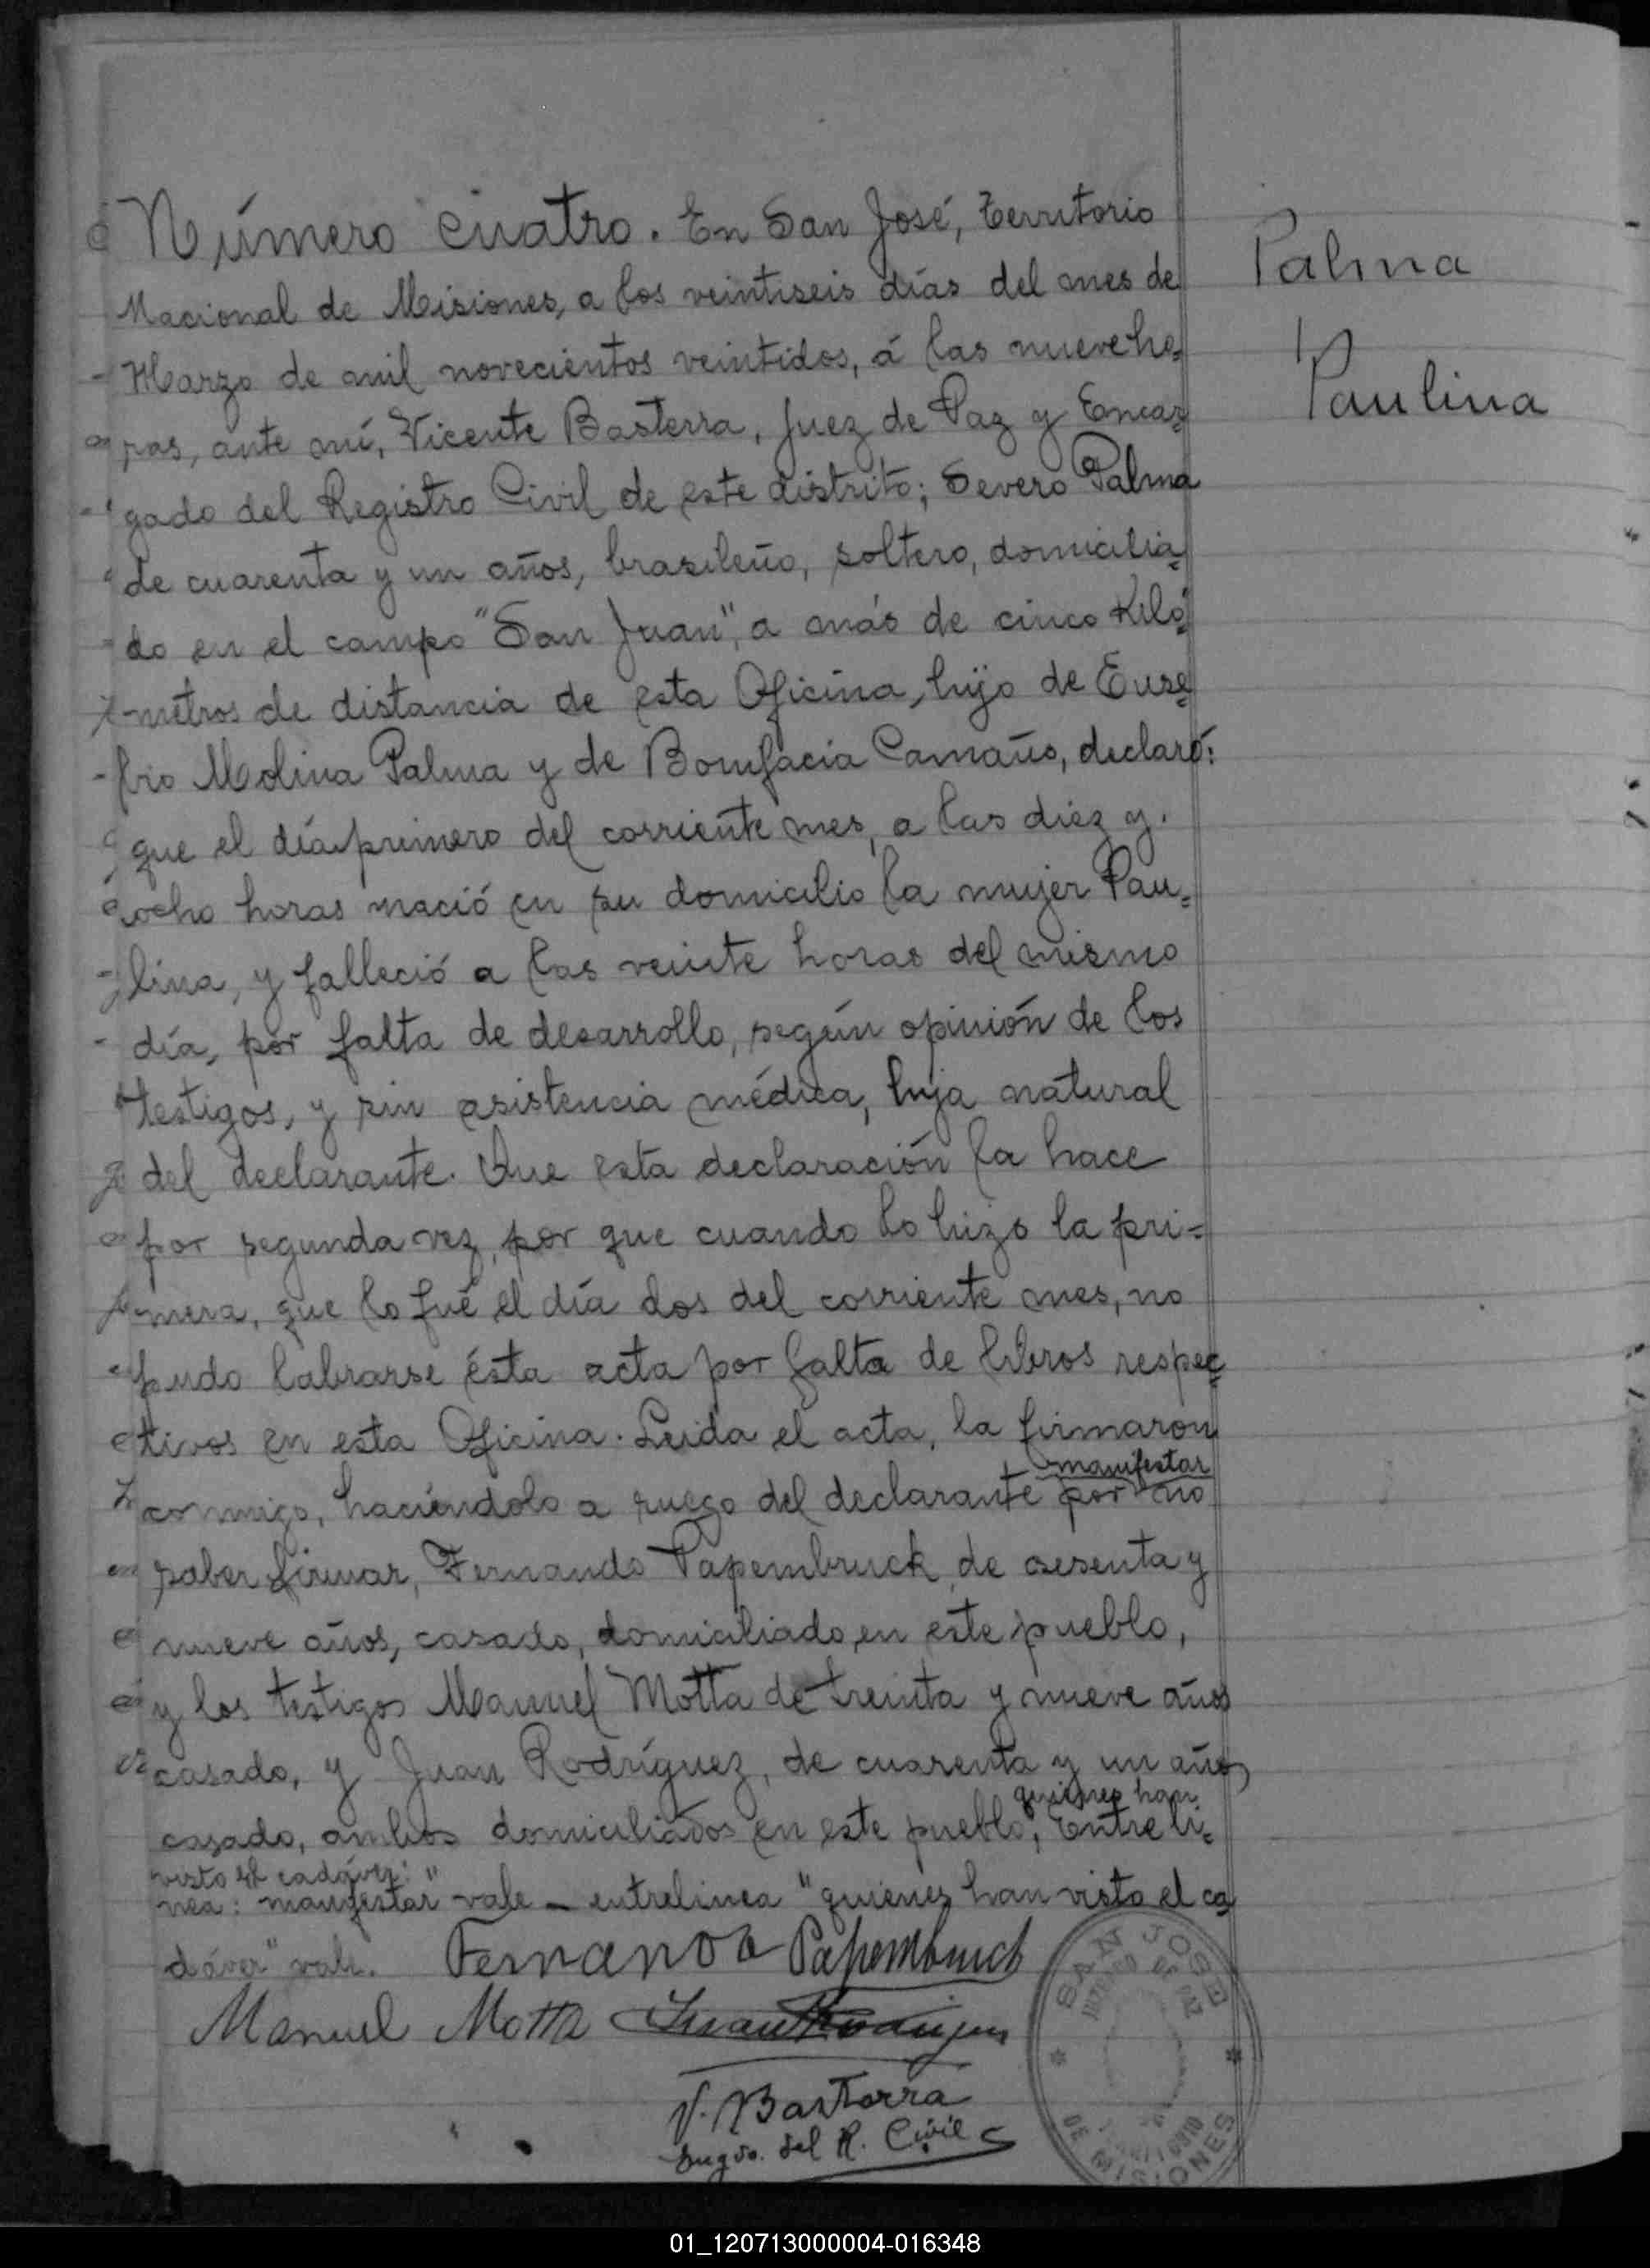 Número cuatro. En San José, Territorio
Nacional de Misiones, a los veintiseis días del mes de
Marzo de mil novecientos veintidos, á las nueve ho=
ras, ante mí, Vicente Basterra, Juez de Paz y Encar=
gado del Registro Civil de este distrito; Severo Palma
de cuarenta y un años, brasileño, soltero, domicilia=
do en el campo "San Juan", a más de cinco Kiló=
metros de distancia de esta Oficina, hijo de Euse=
bio Molina Palma y de Bonifacia Camaño, declaró:
que el día primero del corriente mes, a las diez y
ocho horas nació en su domicilio la mujer Pau=
lina, y falleció a las veinte horas del mismo
día, por falta de desarrollo, según opinión de los
testigos, y sin asistencia médica, hija natural
del declarante. Que esta declaración la hace
por segunda vez, por que cuando lo hizo la pri=
mera, que lo fué el día dos del corriente mes, no
pudo labrarse ésta acta por falta de libros respec=
tivos en esta Oficina. Leida el acta, la firmaron
manifestar
conmigo, haciéndolo a ruego del declarante por no
saber firmar, Fernando Papembruck, de sesenta y
nueve años, casado, domiciliado en este pueblo,
y los testigos Manuel Motta de treinta y nueve años
casado, y Juan Rodríguez, de cuarenta y un años
quienes han
casado, ambos domiciliados en este pueblo, Entre li=
visto el cadáver:
nea: manifestar" vale - entrelinea "quienes han visto el ca
dáver" vale. Fernando Papembruck
Manuel Motta Juan Rodriguez
V. Basterra
del R. Civil
Palma
Paulina
SAN JOSE
JUZGADO DE PAZ
DE MISIONES
01_120713000004-016348